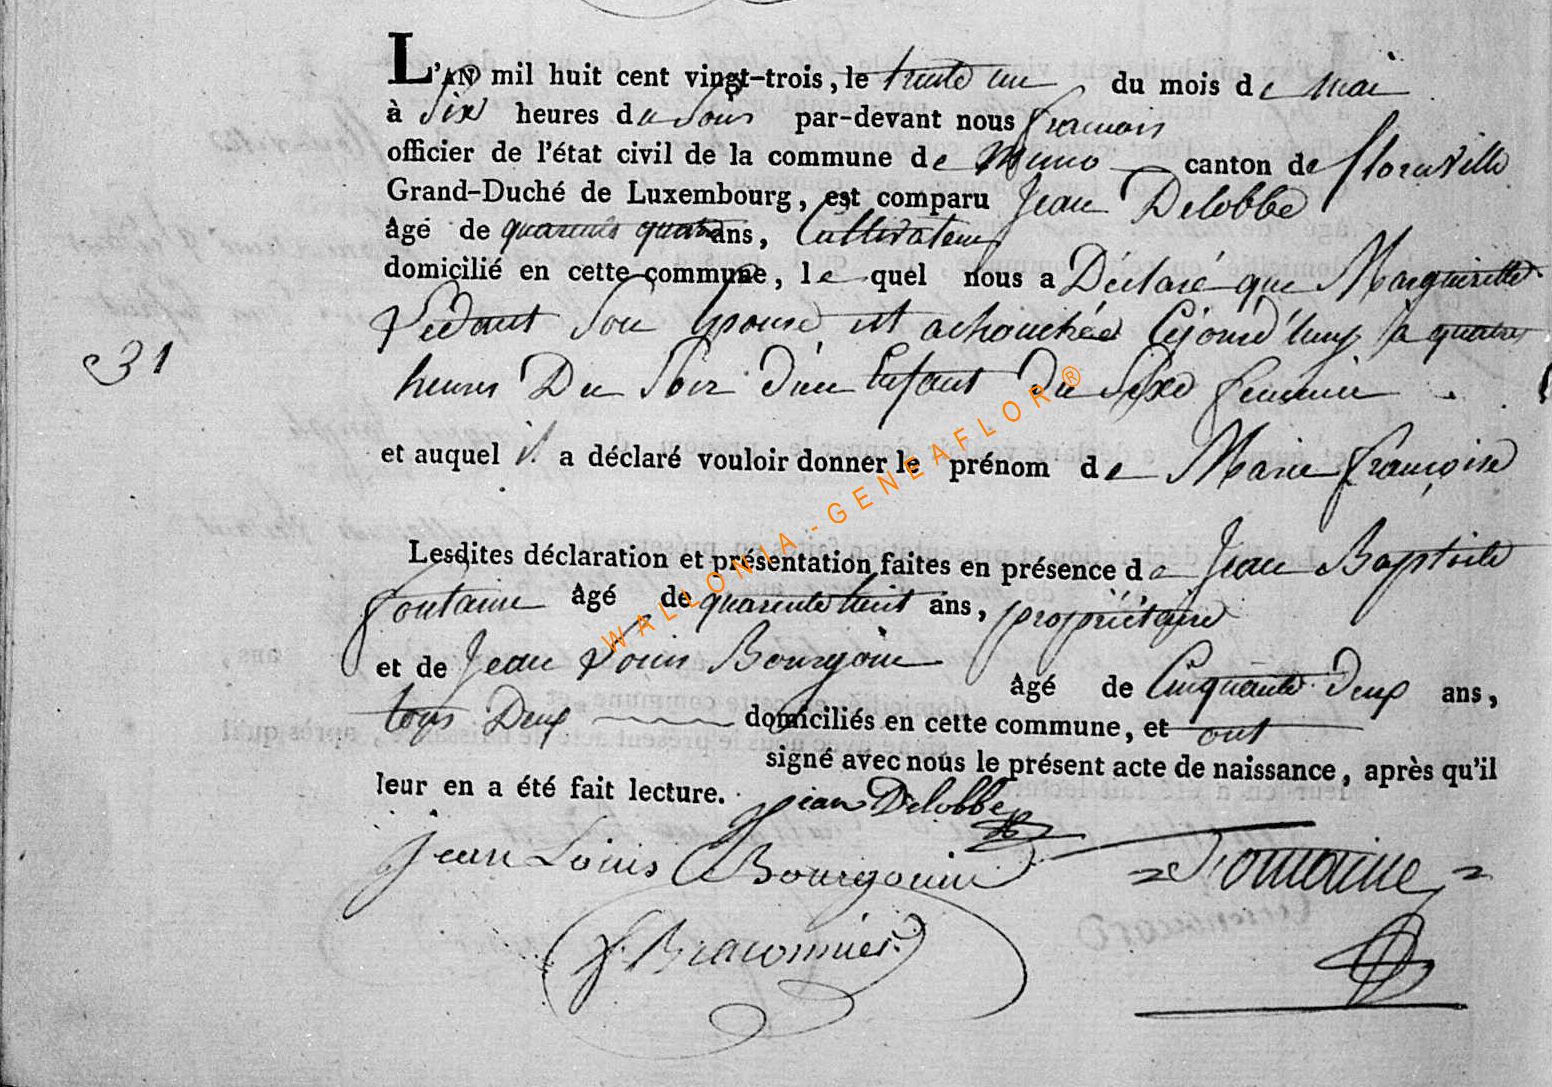 L'AN mil huit cent vingt-trois, le trente un du mois de mai
à Six heures du Soir par-devant nous françois
officier de l'état civil de la commune de Muno canton de florenville
Grand-Duché de Luxembourg, est comparu Jean Delobbe
âgé de quarente quatre ans, Cultivateur
domicilié en cette commune, le quel nous a Déclaré que Marguiritte
Pédant Son Epouse est achouchée Cejourd'huy à quatre
heures Du Soir d'un Enfant du Sexe feminin
31
et auquel il a déclaré vouloir donner le prénom de Marie françoise
Lesdites déclaration et présentation faites en présence de Jean Baptiste
fontaine âgé de quarente huit ans, propriétaire
et de Jean Louis Bourgoin âgé de Cinquante Deux ans,
tous Deux domiciliés en cette commune, et ont
signé avec nous le présent acte de naissance, après qu'il
leur en a été fait lecture. jean Delobbe
Jean Louis Bourgouin Fontaine
f. Braconnier
WALLONIA-GENEAFLOR®